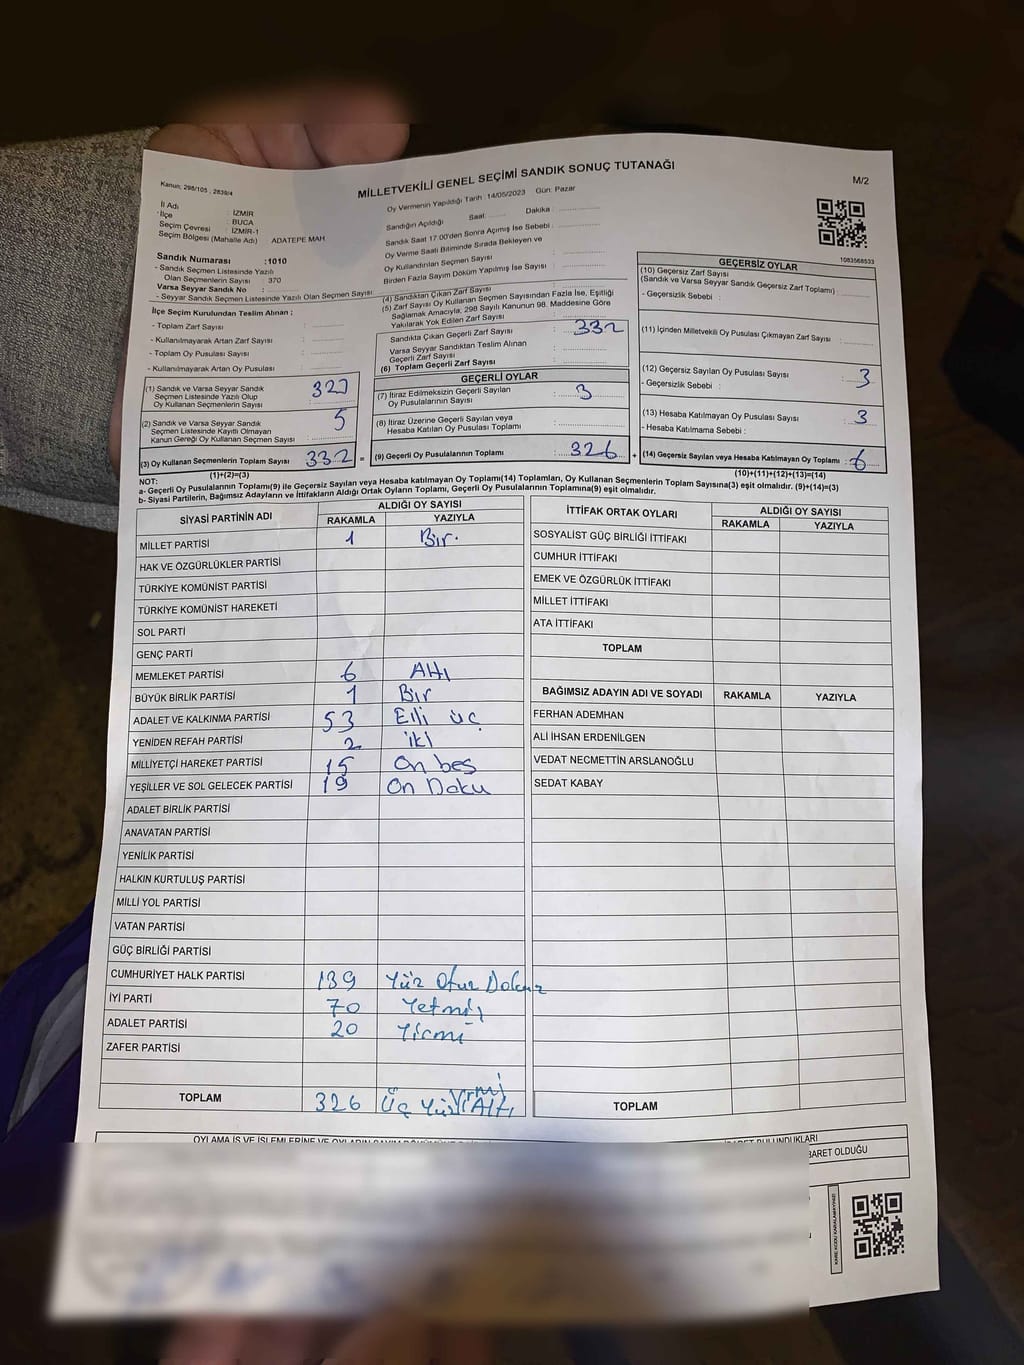 Kanun: 298/105 , 2839/4
MİLLETVEKİLİ GENEL SEÇİMİ SANDIK SONUÇ TUTANAĞI
M/2
İl Adı : İZMİR
İlçe : BUCA
Seçim Çevresi : İZMİR-1
Seçim Bölgesi (Mahalle Adı) ADATEPE MAH.
Sandık Numarası :1010
- Sandık Seçmen Listesinde Yazılı
Olan Seçmenlerin Sayısı 370
Varsa Seyyar Sandık No :
- Seyyar Sandık Seçmen Listesinde Yazılı Olan Seçmen Sayısı:
İlçe Seçim Kurulundan Teslim Alınan ;
- Toplam Zarf Sayısı :
- Kullanılmayarak Artan Zarf Sayısı :
- Toplam Oy Pusulası Sayısı :
- Kullanılmayarak Artan Oy Pusulası :
(1) Sandık ve Varsa Seyyar Sandık
Seçmen Listesinde Yazılı Olup
Oy Kullanan Seçmenlerin Sayısı : 327
(2) Sandık ve Varsa Seyyar Sandık
Seçmen Listesinde Kayıtlı Olmayan
Kanun Gereği Oy Kullanan Seçmen Sayısı : 5
(3) Oy Kullanan Seçmenlerin Toplam Sayısı : 332 =
(1)+(2)=(3)
Oy Vermenin Yapıldığı Tarih : 14/05/2023 Gün: Pazar
Sandığın Açıldığı Saat: Dakika :
Sandık Saat 17.00'den Sonra Açılmış İse Sebebi :
Oy Verme Saati Bitiminde Sırada Bekleyen ve
Oy Kullandırılan Seçmen Sayısı :
Birden Fazla Sayım Döküm Yapılmış İse Sayısı :
(4) Sandıktan Çıkan Zarf Sayısı :
(5) Zarf Sayısı Oy Kullanan Seçmen Sayısından Fazla İse, Eşitliği
Sağlamak Amacıyla, 298 Sayılı Kanunun 98. Maddesine Göre
Yakılarak Yok Edilen Zarf Sayısı :
Sandıkta Çıkan Geçerli Zarf Sayısı : 332
Varsa Seyyar Sandıktan Teslim Alınan
Geçerli Zarf Sayısı :
(6) Toplam Geçerli Zarf Sayısı :
GEÇERLİ OYLAR
(7) İtiraz Edilmeksizin Geçerli Sayılan
Oy Pusulalarının Sayısı : 3
(8) İtiraz Üzerine Geçerli Sayılan veya
Hesaba Katılan Oy Pusulası Toplamı :
(9) Geçerli Oy Pusulalarının Toplamı : 326 +
1083568533
GEÇERSİZ OYLAR
(10) Geçersiz Zarf Sayısı
(Sandık ve Varsa Seyyar Sandık Geçersiz Zarf Toplamı) :
- Geçersizlik Sebebi :
(11) İçinden Milletvekili Oy Pusulası Çıkmayan Zarf Sayısı :
(12) Geçersiz Sayılan Oy Pusulası Sayısı : 3
- Geçersizlik Sebebi :
(13) Hesaba Katılmayan Oy Pusulası Sayısı : 3
- Hesaba Katılmama Sebebi :
(14) Geçersiz Sayılan veya Hesaba Katılmayan Oy Toplamı : 6
(10)+(11)+(12)+(13)=(14)
NOT:
a- Geçerli Oy Pusulalarının Toplamı(9) ile Geçersiz Sayılan veya Hesaba katılmayan Oy Toplamı(14) Toplamları, Oy Kullanan Seçmenlerin Toplam Sayısına(3) eşit olmalıdır. (9)+(14)=(3)
b- Siyasi Partilerin, Bağımsız Adayların ve İttifakların Aldığı Ortak Oyların Toplamı, Geçerli Oy Pusulalarının Toplamına(9) eşit olmalıdır.
SİYASİ PARTİNİN ADI ALDIĞI OY SAYISI
RAKAMLA YAZIYLA
MİLLET PARTİSİ 1 Bir.
HAK VE ÖZGÜRLÜKLER PARTİSİ
TÜRKİYE KOMÜNİST PARTİSİ
TÜRKİYE KOMÜNİST HAREKETİ
SOL PARTİ
GENÇ PARTİ
MEMLEKET PARTİSİ 6 Altı
BÜYÜK BİRLİK PARTİSİ 1 Bir
ADALET VE KALKINMA PARTİSİ 53 Elli üç
YENİDEN REFAH PARTİSİ 2 iki
MİLLİYETÇİ HAREKET PARTİSİ 15 On beş
YEŞİLLER VE SOL GELECEK PARTİSİ 19 On Doku
ADALET BİRLİK PARTİSİ
ANAVATAN PARTİSİ
YENİLİK PARTİSİ
HALKIN KURTULUŞ PARTİSİ
MİLLİ YOL PARTİSİ
VATAN PARTİSİ
GÜÇ BİRLİĞİ PARTİSİ
CUMHURİYET HALK PARTİSİ 139 Yüz Otuz Dokuz
İYİ PARTİ 70 Yetmiş
ADALET PARTİSİ 20 Yirmi
ZAFER PARTİSİ
TOPLAM 326 Üç Yüz Yirmi Altı
İTTİFAK ORTAK OYLARI ALDIĞI OY SAYISI
RAKAMLA YAZIYLA
SOSYALİST GÜÇ BİRLİĞİ İTTİFAKI
CUMHUR İTTİFAKI
EMEK VE ÖZGÜRLÜK İTTİFAKI
MİLLET İTTİFAKI
ATA İTTİFAKI
TOPLAM
BAĞIMSIZ ADAYIN ADI VE SOYADI RAKAMLA YAZIYLA
FERHAN ADEMHAN
ALİ İHSAN ERDENİLGEN
VEDAT NECMETTİN ARSLANOĞLU
SEDAT KABAY
TOPLAM